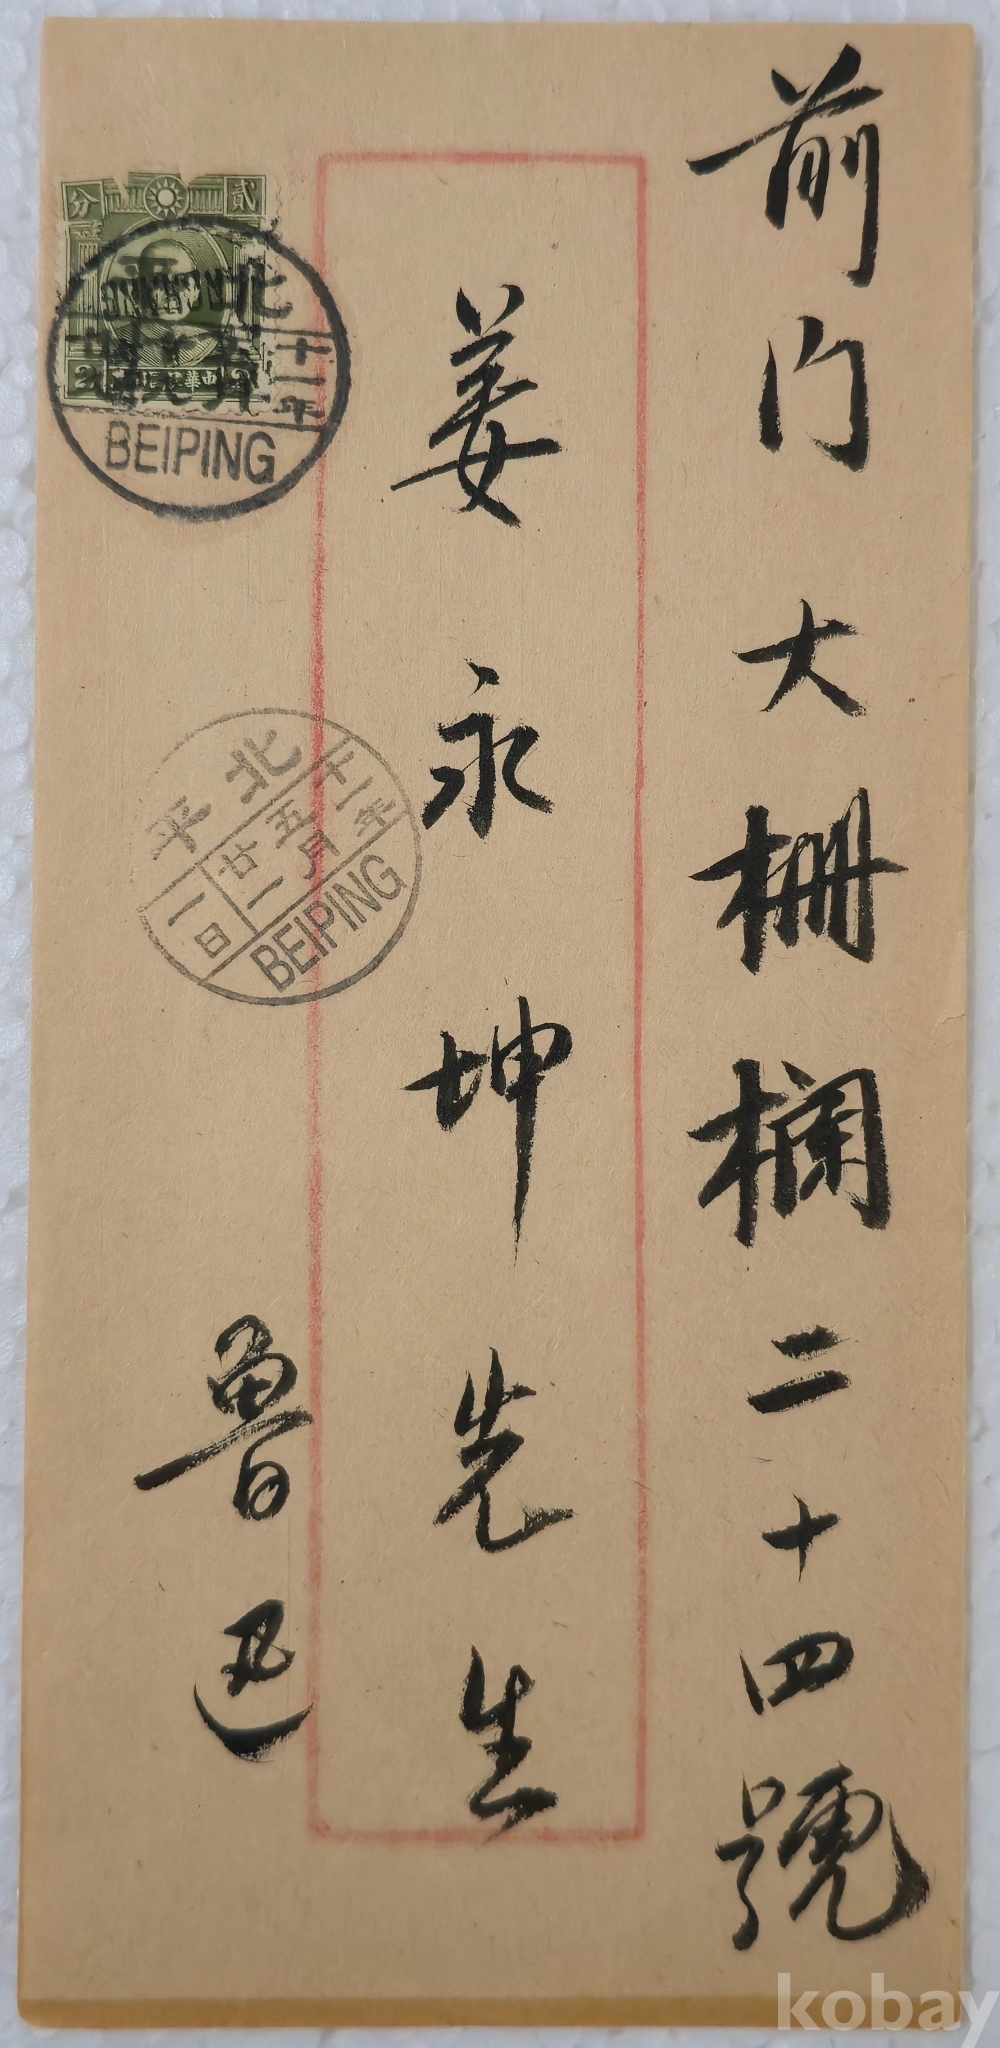 前门大柵欄二十四號
姜永坤先生
魯迅
貳
分
中華
2
北
十一年
BEIPING
北平
十一年
五月
廿一
一日
BEIPING
kobay